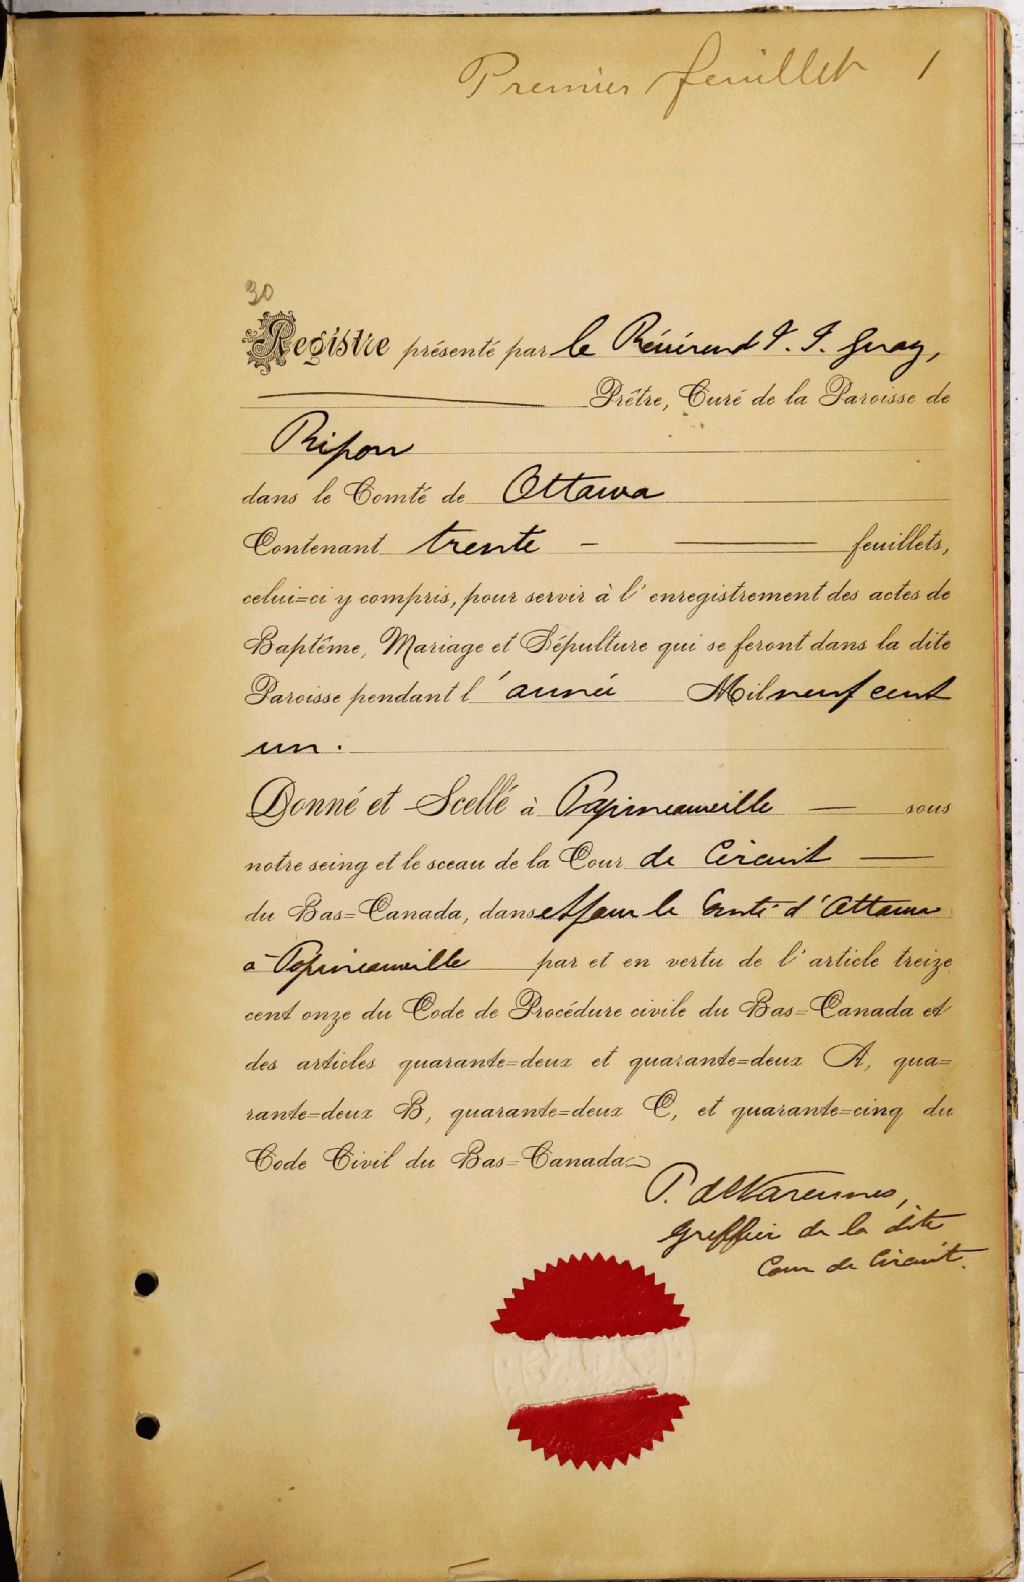 Premier feuillet 1
30
Registre présenté par le Révérend
Prêtre, Curé de la Paroisse de
Ripon
dans le Comté de Ottawa
Contenant trente feuillets,
celui=ci y compris, pour servir à l'enregistrement des actes de
Baptême, Mariage et Sépulture qui se feront dans la dite
Paroisse pendant l'année Mil neuf cent
un.
Donné et Scellé à Papineauville sous
notre seing et le sceau de la Cour de Circuit
du Bas=Canada, dans et pour le Comté d'Ottawa
à Papineauville par et en vertu de l'article treize
cent onze du Code de Procédure civile du Bas=Canada et
des articles quarante=deux et quarante=deux A, qua=
rante=deux B, quarante=deux C, et quarante=cinq du
Code Civil du Bas=Canada
P. deVarennes,
Greffier de la dite
Cour de Circuit.